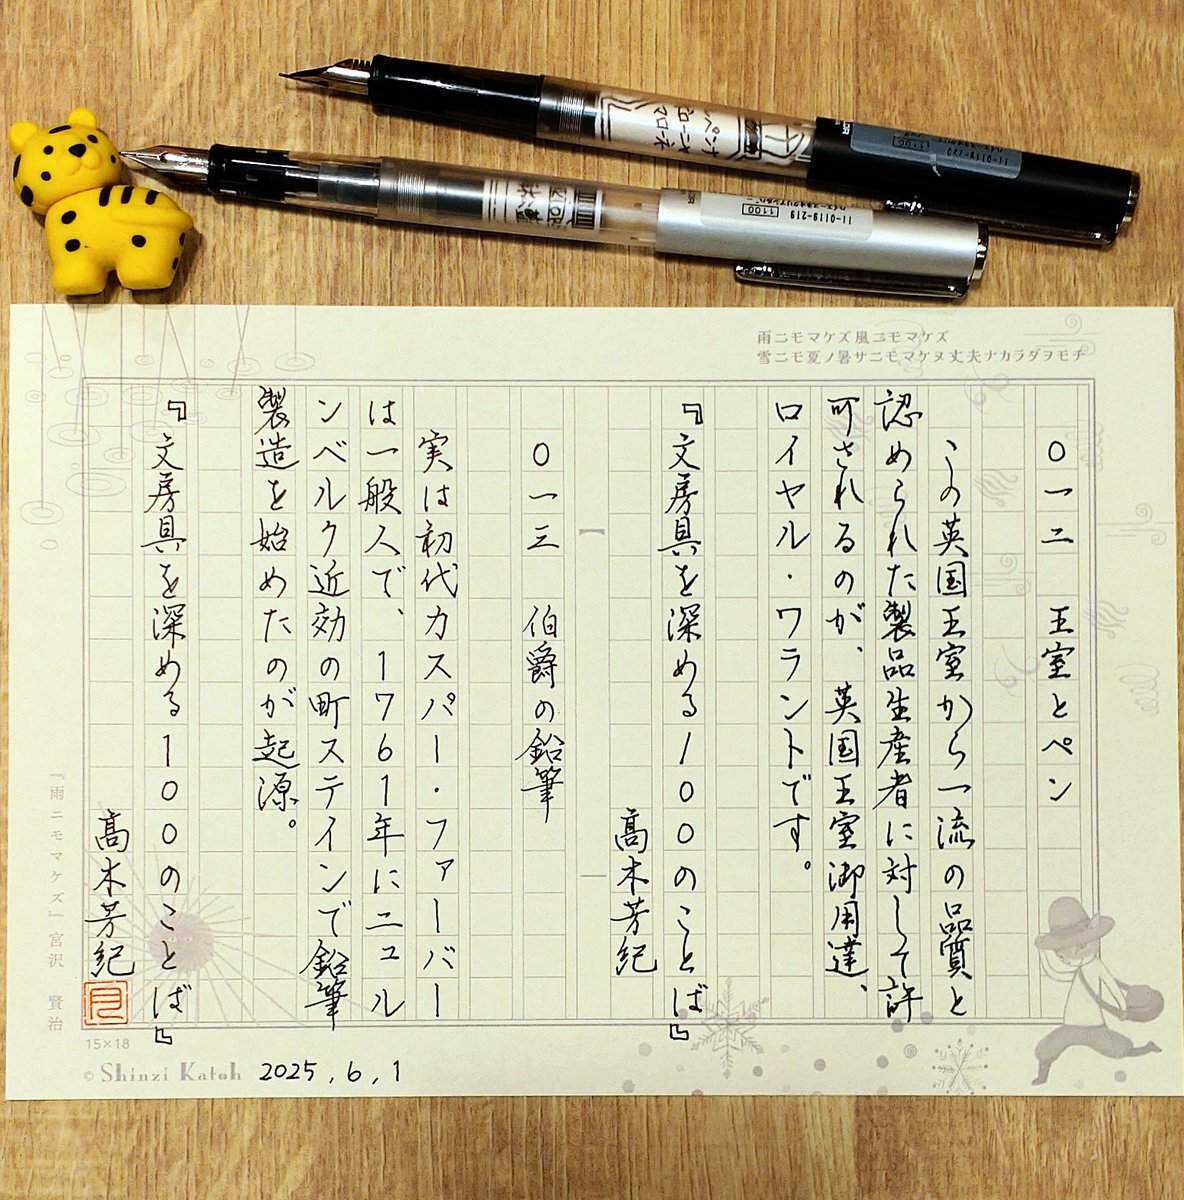 11-0119-219
1100
雨ニモマケズ風ニモマケズ
雪ニモ夏ノ暑サニモマケヌ丈夫ナカラダヲモチ
〇一二　王室とペン
この英国王室から一流の品質と
認められた製品生産者に対して許
可されるのが、英国王室御用達、
ロイヤル・ワラントです。
『文房具を深める100のことば』
高木芳紀
〇一三　伯爵の鉛筆
実は初代カスパー・ファーバー
は一般人で、1761年にニュル
ンベルク近効の町スティンで鉛筆
製造を始めたのが起源。
『文房具を深める100のことば』
高木芳紀
『雨ニモマケズ』宮沢　賢治
15×18
© Shinzi Katoh
2025,6,1